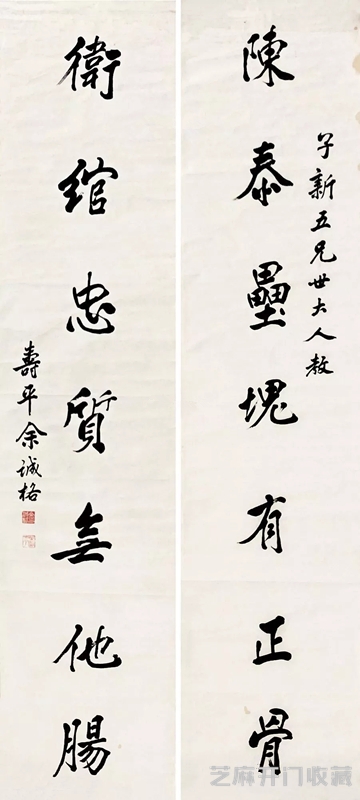 子新五兄世大人教
陳泰壘塊有正骨
衛綰忠質無他腸
壽平余誠格
芝麻开门收藏